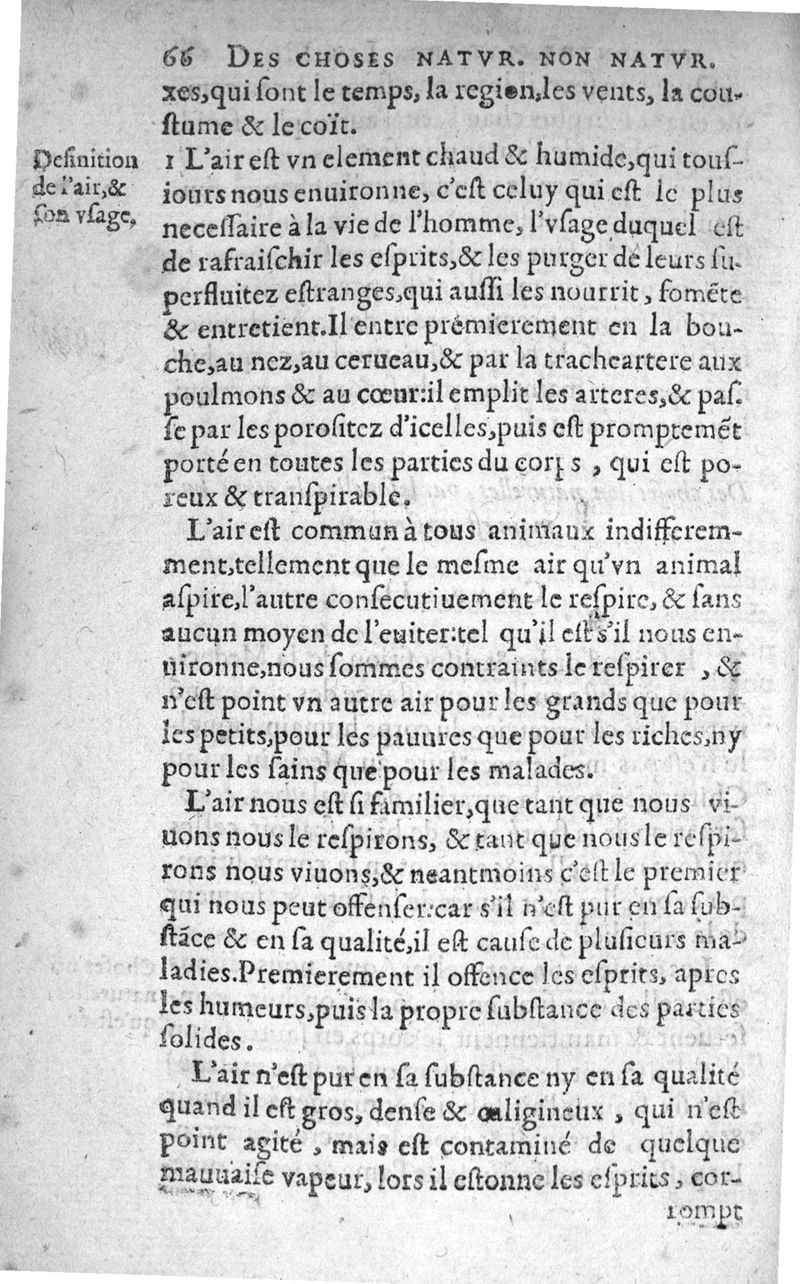 66 DES CHOSES NATVR. NON NATVR.
xes,qui ſont le temps, la region,les vents, la cou-
ſtume & le coït.
Definition
de l'air,&
ſon vſage,
1 L'air eſt vn element chaud & humide,qui touſ-
iours nous enuironne, c'eſt celuy qui eſt le plus
neceſſaire à la vie de l'homme, l'vſage duquel eſt
de rafraiſchir les eſprits,& les purger de leurs ſu-
perfluitez eſtranges,qui auſſi les nourrit, fomẽte
& entretient.Il entre premierement en la bou-
che,au nez,au cerueau,& par la tracheartere aux
poulmons & au cœur:il emplit les arteres,& paſ-
ſe par les poroſitez d'icelles,puis eſt promptemẽt
porté en toutes les parties du corps , qui eſt po-
reux & tranſpirable.
L'air eſt commun à tous animaux indifferem-
ment,tellement que le meſme air qu'vn animal
aſpire,l'autre conſecutiuement le reſpire, & ſans
aucun moyen de l'euiter:tel qu'il eſt s'il nous en-
uironne,nous ſommes contraints le reſpirer , &
n'eſt point vn autre air pour les grands que pour
les petits,pour les pauures que pour les riches,ny
pour les ſains que pour les malades.
L'air nous eſt ſi familier,que tant que nous vi-
uons nous le reſpirons, & tant que nous le reſpi-
rons nous viuons,& neantmoins c'eſt le premier
qui nous peut offenſer:car s'il n'eſt pur en ſa ſub-
ſtãce & en ſa qualité,il eſt cauſe de pluſieurs ma-
ladies.Premierement il offence les eſprits, apres
les humeurs,puis la propre ſubſtance des parties
ſolides.
L'air n'eſt pur en ſa ſubſtance ny en ſa qualité
quand il eſt gros, denſe & caligineux , qui n'eſt
point agité , mais eſt contaminé de quelque
mauuaiſe vapeur, lors il eſtonne les eſprits, cor-
rompt